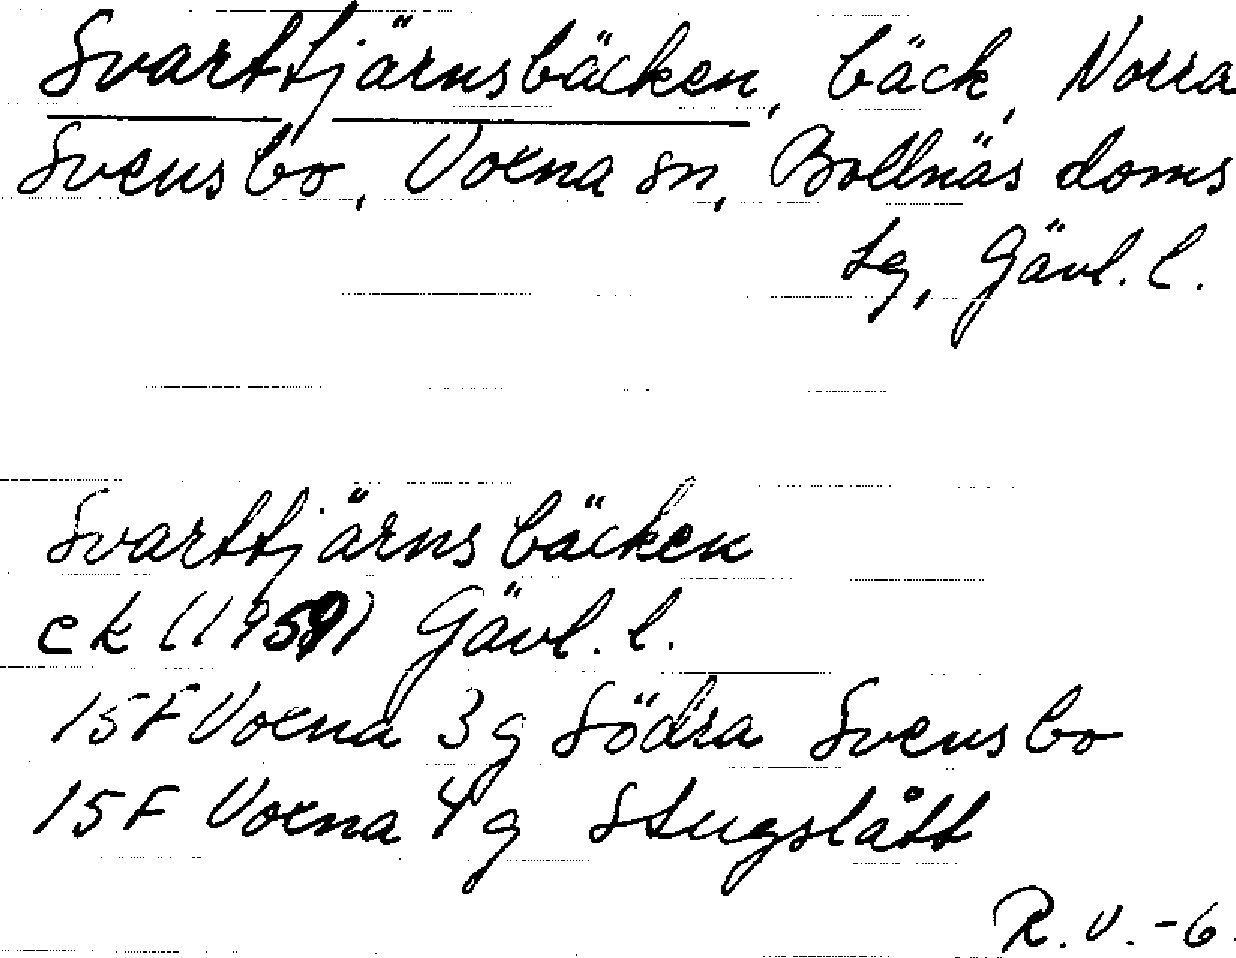 Svarttjärnsbäcken, bäck, Norra
Svensbo, Voxna sn, Bollnäs doms
sg, Gävl. l.
Svarttjärnsbäcken
ek (1959) Gävl. l.
15F Voxna 3g Södra Svensbo
15F Voxna 4g Stugslått
R.V.-6.